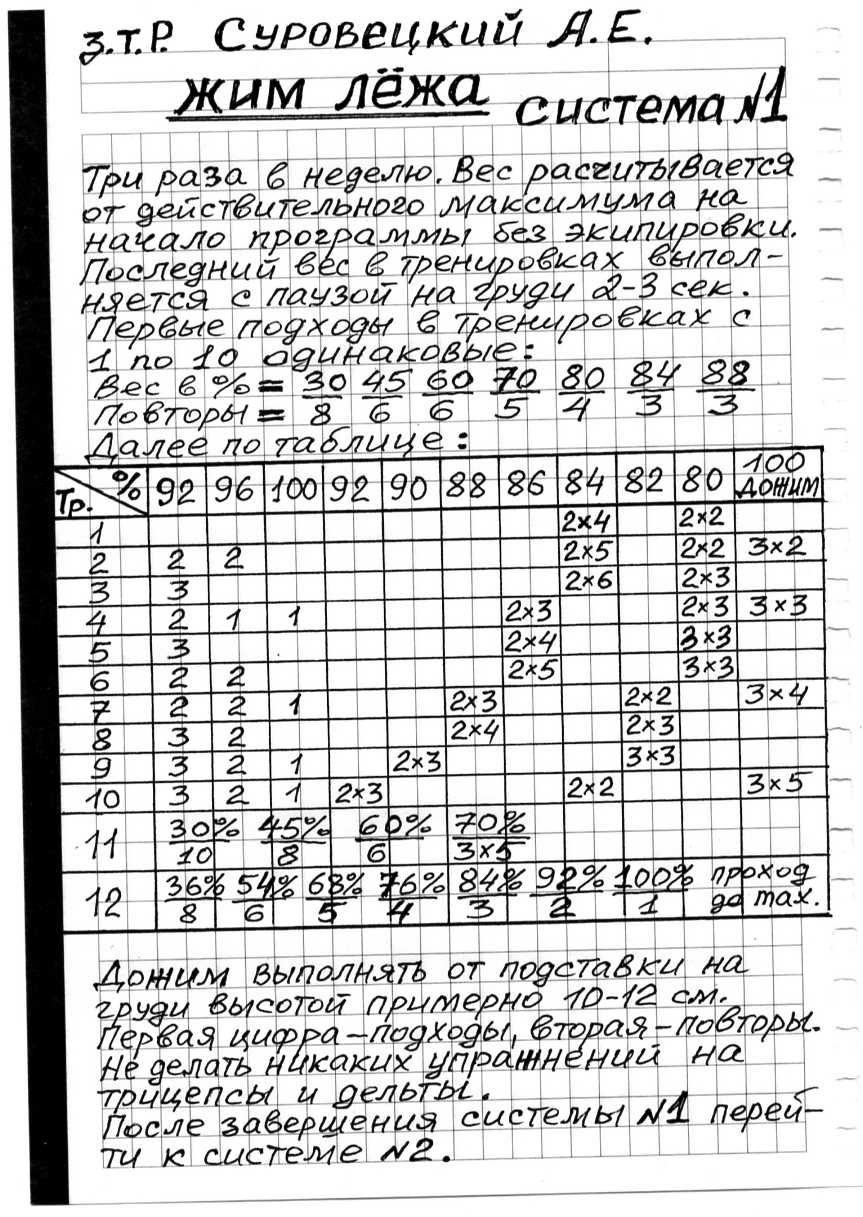 З.Т.Р. Суровецкий А.Е.
Жим лёжа система №1
Три раза в неделю. Вес расчитывается
от действительного максимума на
начало программы без экипировки.
Последний вес в тренировках выпол-
няется с паузой на груди 2-3 сек.
Первые подходы в тренировках с
1 по 10 одинаковые:
Вес в % = 30 45 60 70 80 84 88
Повторы = 8 6 6 5 4 3 3
Далее по таблице:
Тр. % 92 96 100 92 90 88 86 84 82 80 100 дожим
1 2×4 2×2
2 2 2 2×5 2×2 3×2
3 3 2×6 2×3
4 2 1 1 2×3 2×3 3×3
5 3 2×4 3×3
6 2 2 2×5 3×3
7 2 2 1 2×3 2×2 3×4
8 3 2 2×4 2×3
9 3 2 1 2×3 3×3
10 3 2 1 2×3 2×2 3×5
11 30% 45% 60% 70%
10 8 6 3×5
12 36% 54% 68% 76% 84% 92% 100% проход
8 6 5 4 3 2 1 до max.
Дожим выполнять от подставки на
груди высотой примерно 10-12 см.
Первая цифра-подходы, вторая-повторы.
Не делать никаких упражнений на
трицепсы и дельты.
После завершения системы №1 перей-
ти к системе №2.